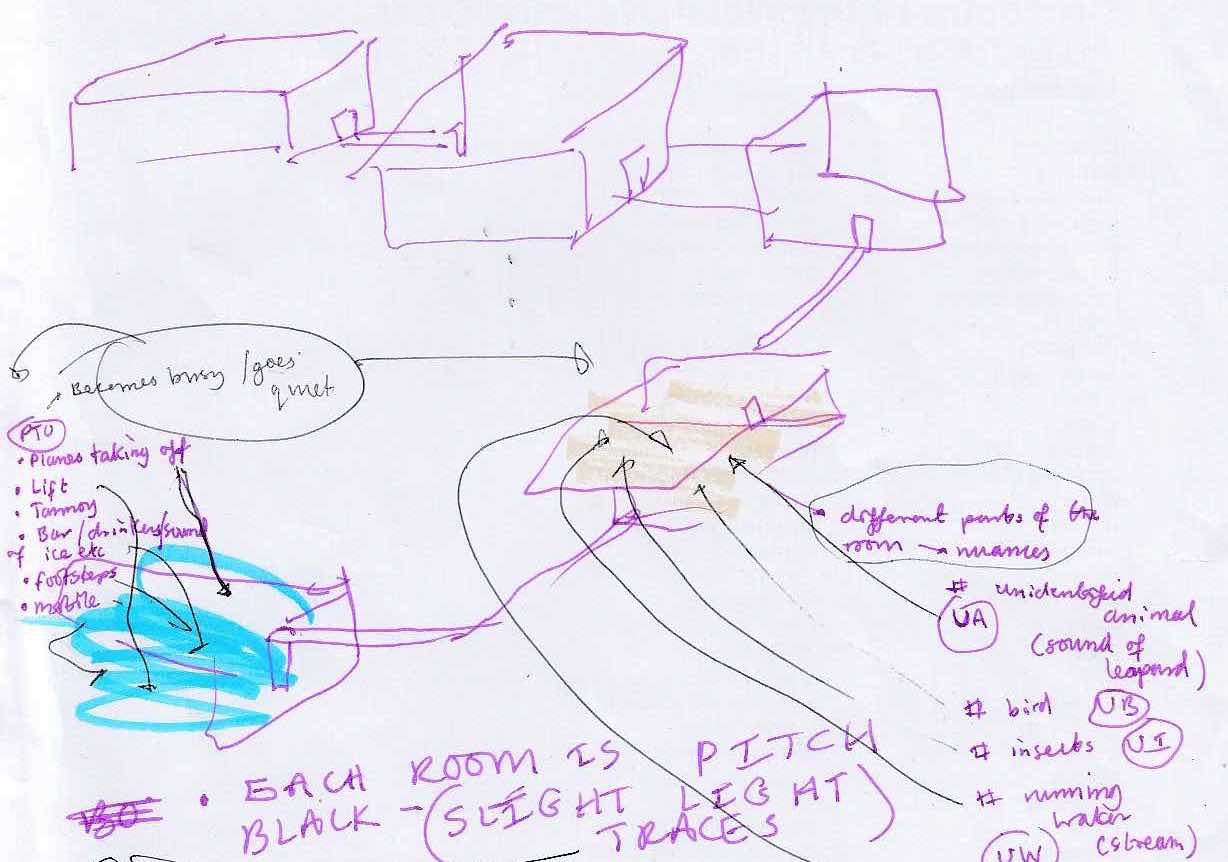 Becomes busy / goes
quiet
PTO
• Planes taking off
• Lift
• Tannoy
• Bar / drinkers / sound
of ice etc
• footsteps
• mobile
different parts of the
room → nuances
# unidentified
animal
(sound of
leopard)
UA
# bird UB
# insects UI
# running
water
(stream)
UW
• EACH ROOM IS PITCH
BLACK – (SLIGHT LIGHT
TRACES)